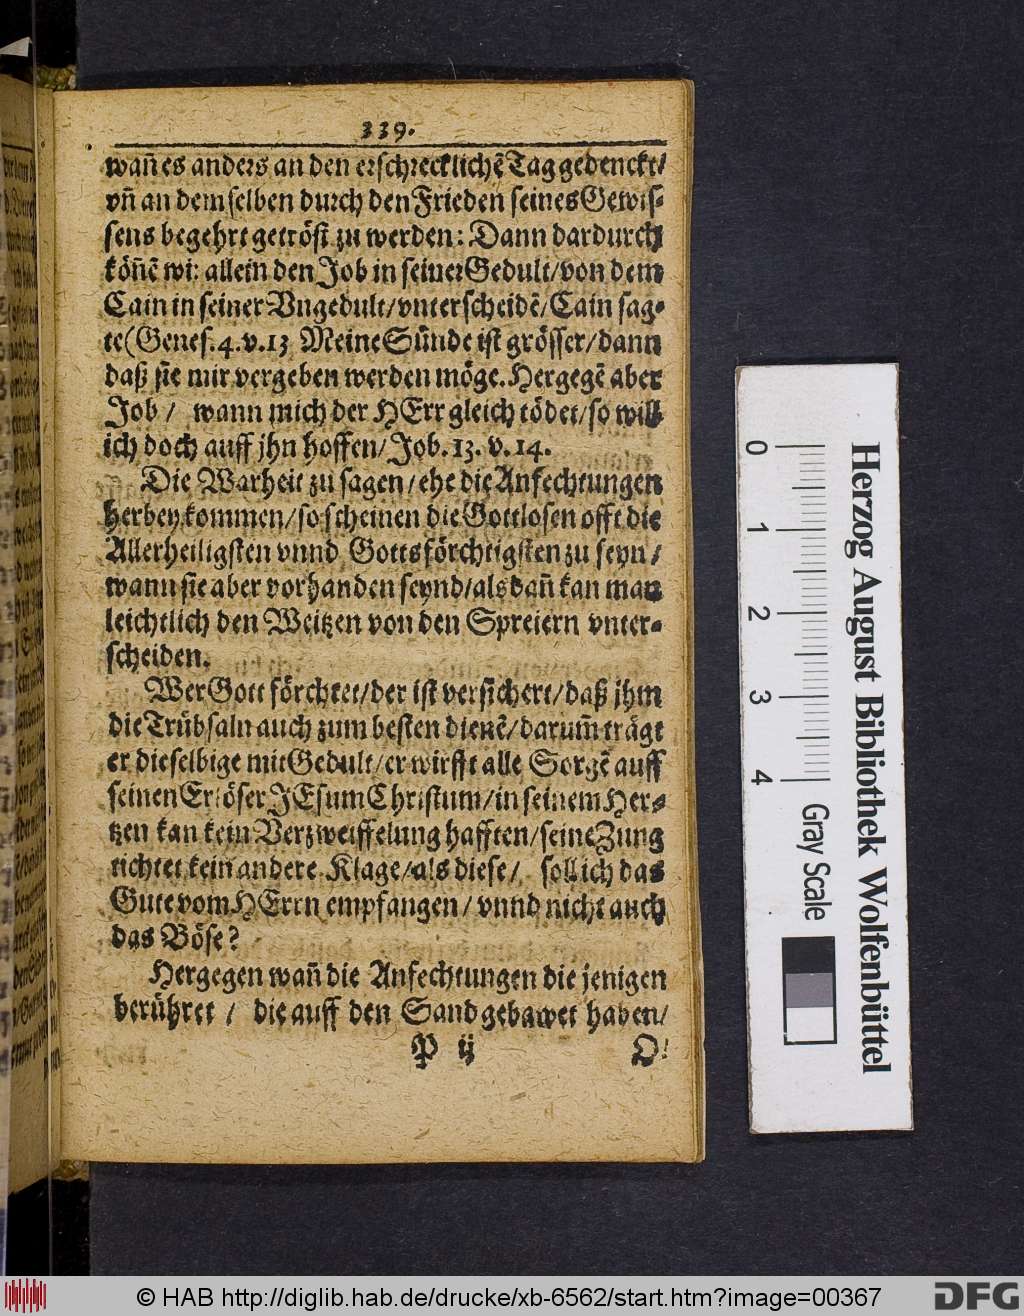 339.
wañ es anders an den erschrecklichẽ Tag gedenckt/
vñ an demselben durch den Frieden seines Gewis-
sens begehrt getröst zu werden: Dann dardurch
köñẽ wir allein den Job in seiner Gedult/von dem
Cain in seiner Vngedult/vnterscheidẽ/Cain sag-
te(Genes.4.v.13 Meine Sünde ist grösser/dann
daß sie mir vergeben werden möge. Hergegẽ aber
Job / wann mich der HErr gleich tödet/so will
ich doch auff jhn hoffen/Job.13.v.14.
Die Warheit zu sagen/ehe die Anfechtungen
herbey kommen/so scheinen die Gottlosen offt die
Allerheiligsten vnnd Gottsförchtigsten zu seyn/
wann sie aber vorhanden seynd/als dañ kan man
leichtlich den Weitzen von den Spreiern vnter-
scheiden.
Wer Gott förchtet/der ist versichert/daß jhm
die Trübsaln auch zum besten dienẽ/darum̃ trägt
er dieselbige mit Gedult/er wirfft alle Sorgẽ auff
seinen Erlöser JEsum Christum/in seinem Her-
tzen kan kein Verzweiffelung hafften/seine Zung
richtet kein andere Klage/als diese/ soll ich das
Gute vom HErrn empfangen/vnnd nicht auch
das Böse?
Hergegen wañ die Anfechtungen die jenigen
berühret / die auff den Sand gebawet haben/
P ij
O!
Herzog August Bibliothek Wolfenbüttel
0 1 2 3 4
Gray Scale
© HAB http://diglib.hab.de/drucke/xb-6562/start.htm?image=00367
DFG